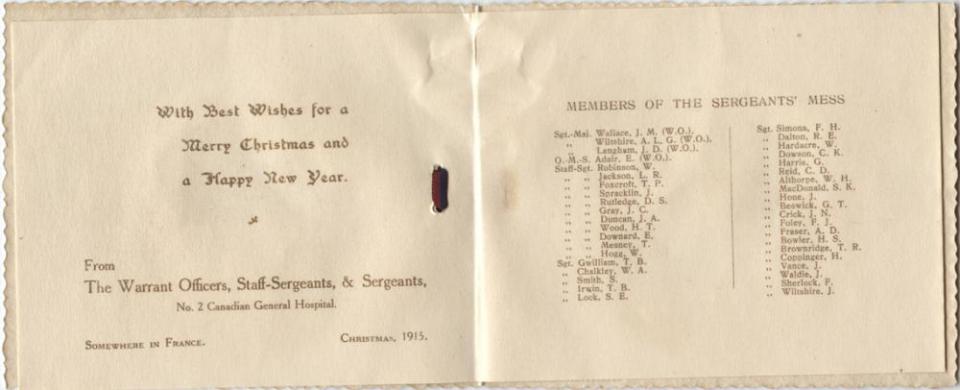 With Best Wishes for a
Merry Christmas and
a Happy New Year.
From
The Warrant Officers, Staff-Sergeants, & Sergeants,
No. 2 Canadian General Hospital.
Somewhere in France.
Christmas, 1915.
MEMBERS OF THE SERGEANTS' MESS
Sgt.-Maj. Wallace, J. M. (W.O.).
„ Wiltshire, A. L. G. (W.O.).
„ Langham, J. D. (W.O.).
Q.-M.-S. Adair, E. (W.O.).
Staff-Sgt. Robinson, W.
„ „ Jackson, L. R.
„ „ Foxcroft, T. P.
„ „ Spracklin, J.
„ „ Rutledge, D. S.
„ „ Gray, J. C.
„ „ Duncan, J. A.
„ „ Wood, H. T.
„ „ Downard, E.
„ „ Messer, T.
„ „ Hogg, W.
Sgt. Gwilliam, T. B.
„ Chalkley, W. A.
„ Smith, S.
„ Irwin, T. B.
„ Lock, S. E.
Sgt. Simons, F. H.
„ Dalton, R. E.
„ Hardacre, W.
„ Dowson, C. K.
„ Harris, G.
„ Reid, C. D.
„ Althorpe, W. H.
„ MacDonald, S. K.
„ Hone, J.
„ Beswick, G. T.
„ Crick, J. N.
„ Foley, F. J.
„ Fraser, A. D.
„ Bowler, H. S.
„ Brownridge, T. R.
„ Coppinger, H.
„ Vance, J.
„ Waldie, J.
„ Sherlock, F.
„ Wiltshire, J.